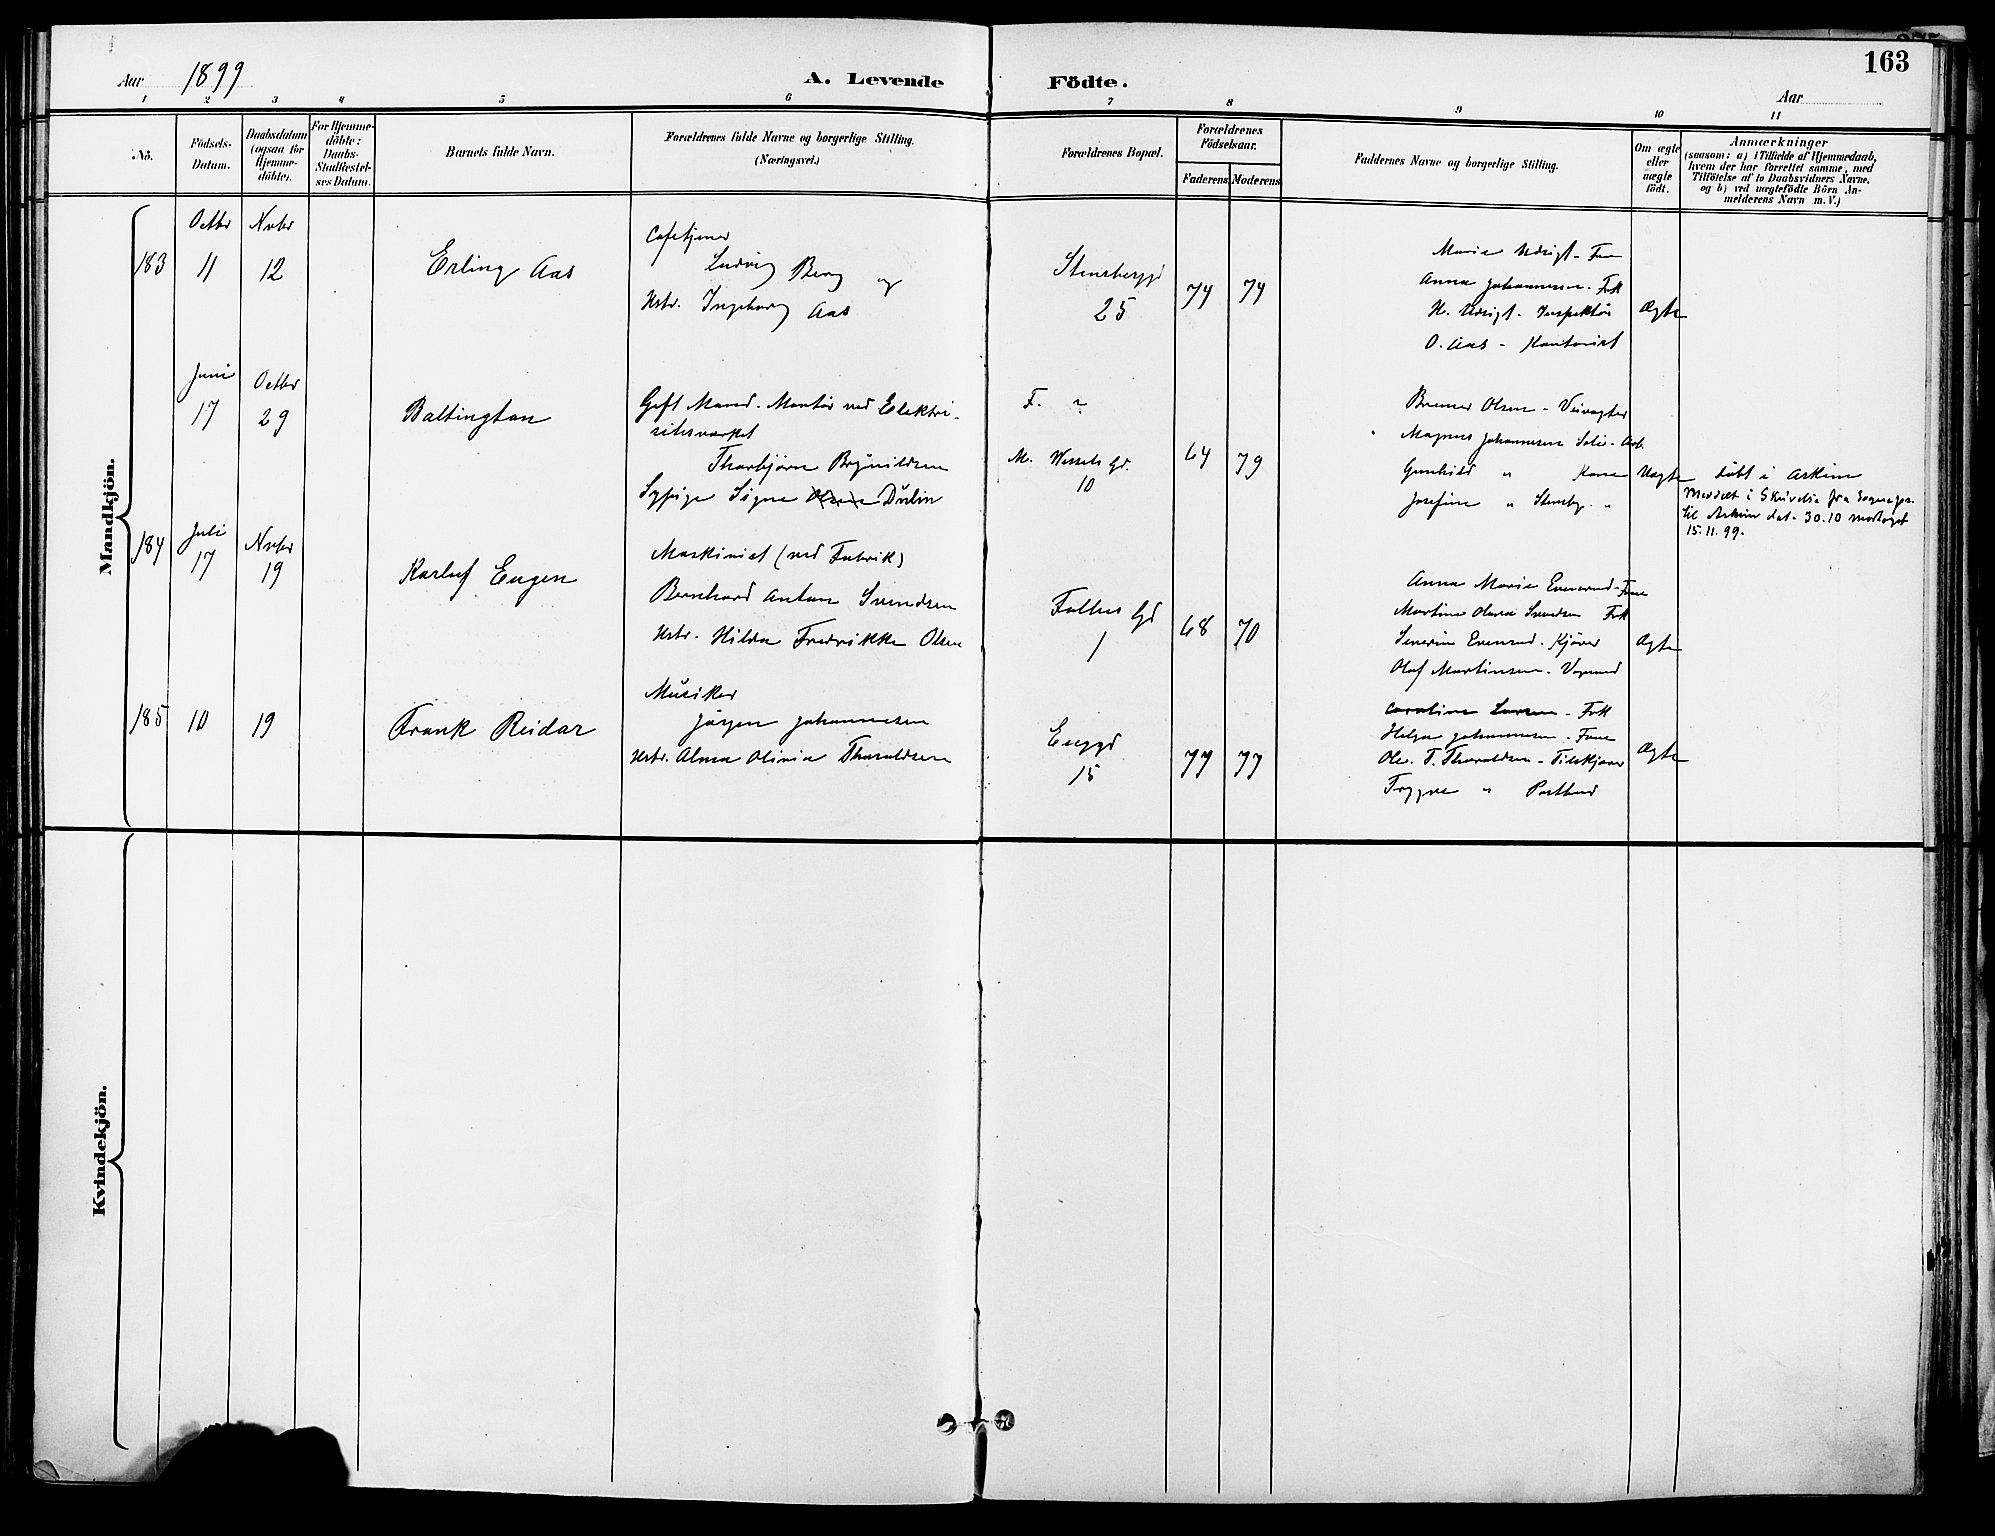 Aar 1899
A. Levende Födte.
163
Aar
1 2 3 4 5 6 7 8 9 10 11
No.
Födsels-
Datum.
Daabsdatum
(ogsaa for
Hjemme-
döbte).
For Hjemme-
döbte:
Daabs-
Stadfæstel-
ses Datum.
Barnets fulde Navn.
Forældrenes fulde Navne og borgerlige Stilling.
(Næringsvei.)
Forældrenes Bopæl.
Forældrenes
Födselsaar.
Faderens
Moderens
Faddernes Navne og borgerlige Stilling.
Om ægte
eller
uægte
födt.
Anmærkninger
(saasom: a) i Tilfælde af Hjemmedaab,
hvem der har forrettet samme, med
Tilföielse af to Daabsvidners Navne,
og b) ved uægtefödte Börn An-
melderens Navn m. V.)
Mandkjön.
183
Octbr
11
Nvbr
12
Erling Aas
Cafetjener
Ludvig Berg og
Hstr. Ingeborg Aas
Stensberggd
25
74
74
Marie Udsigt - Frue
Anna Johannesen - Frk
H. Udsigt - Inspektör
O. Aas - Kontorist
Ægte
Juni
17
Octbr
29
Baltington
Gift Mand - Montör ved Elektri-
sitetsværket
Thorbjörn Brynildsen
Sypige Signe Olsen Dulin
F. ?
M. Wessels Gd.
10
64
79
Brenner Olsen - Veivogter
Magnus Johannesen Solie - Arb.
Gunhild " Kone
Josefine " Stensby "
Uægte
Döbt i Askim
Meddelt i Skrivelse fra Sognepr.
til Askim dat. 30.10 modtaget
15.11.99.
184
Juli
17
Nvbr
19
Karluf Eugen
Maskinist (ved Fabrik)
Bernhard Anton Svendsen
Hstr. Hilda Fredrikke Olsen
Falbes Gd
1
68
70
Anna Marie Evensrud - Frue
Martine Olava Svendsen Frk
Severin Evensrud - Kjörer
Olaf Martinsen - Vognmd
Ægte
185
10
19
Frank Reidar
Musiker
Jörgen Johannesen
Hstr. Alma Olivia Tharaldsen
Enggd
15
77
77
Caroline Larsen - Frk
Helga Johannesen - Frue
Ole. T. Tharaldsen - Tilskjærer
Trygve " Postbud
Ægte
Kvindekjön.